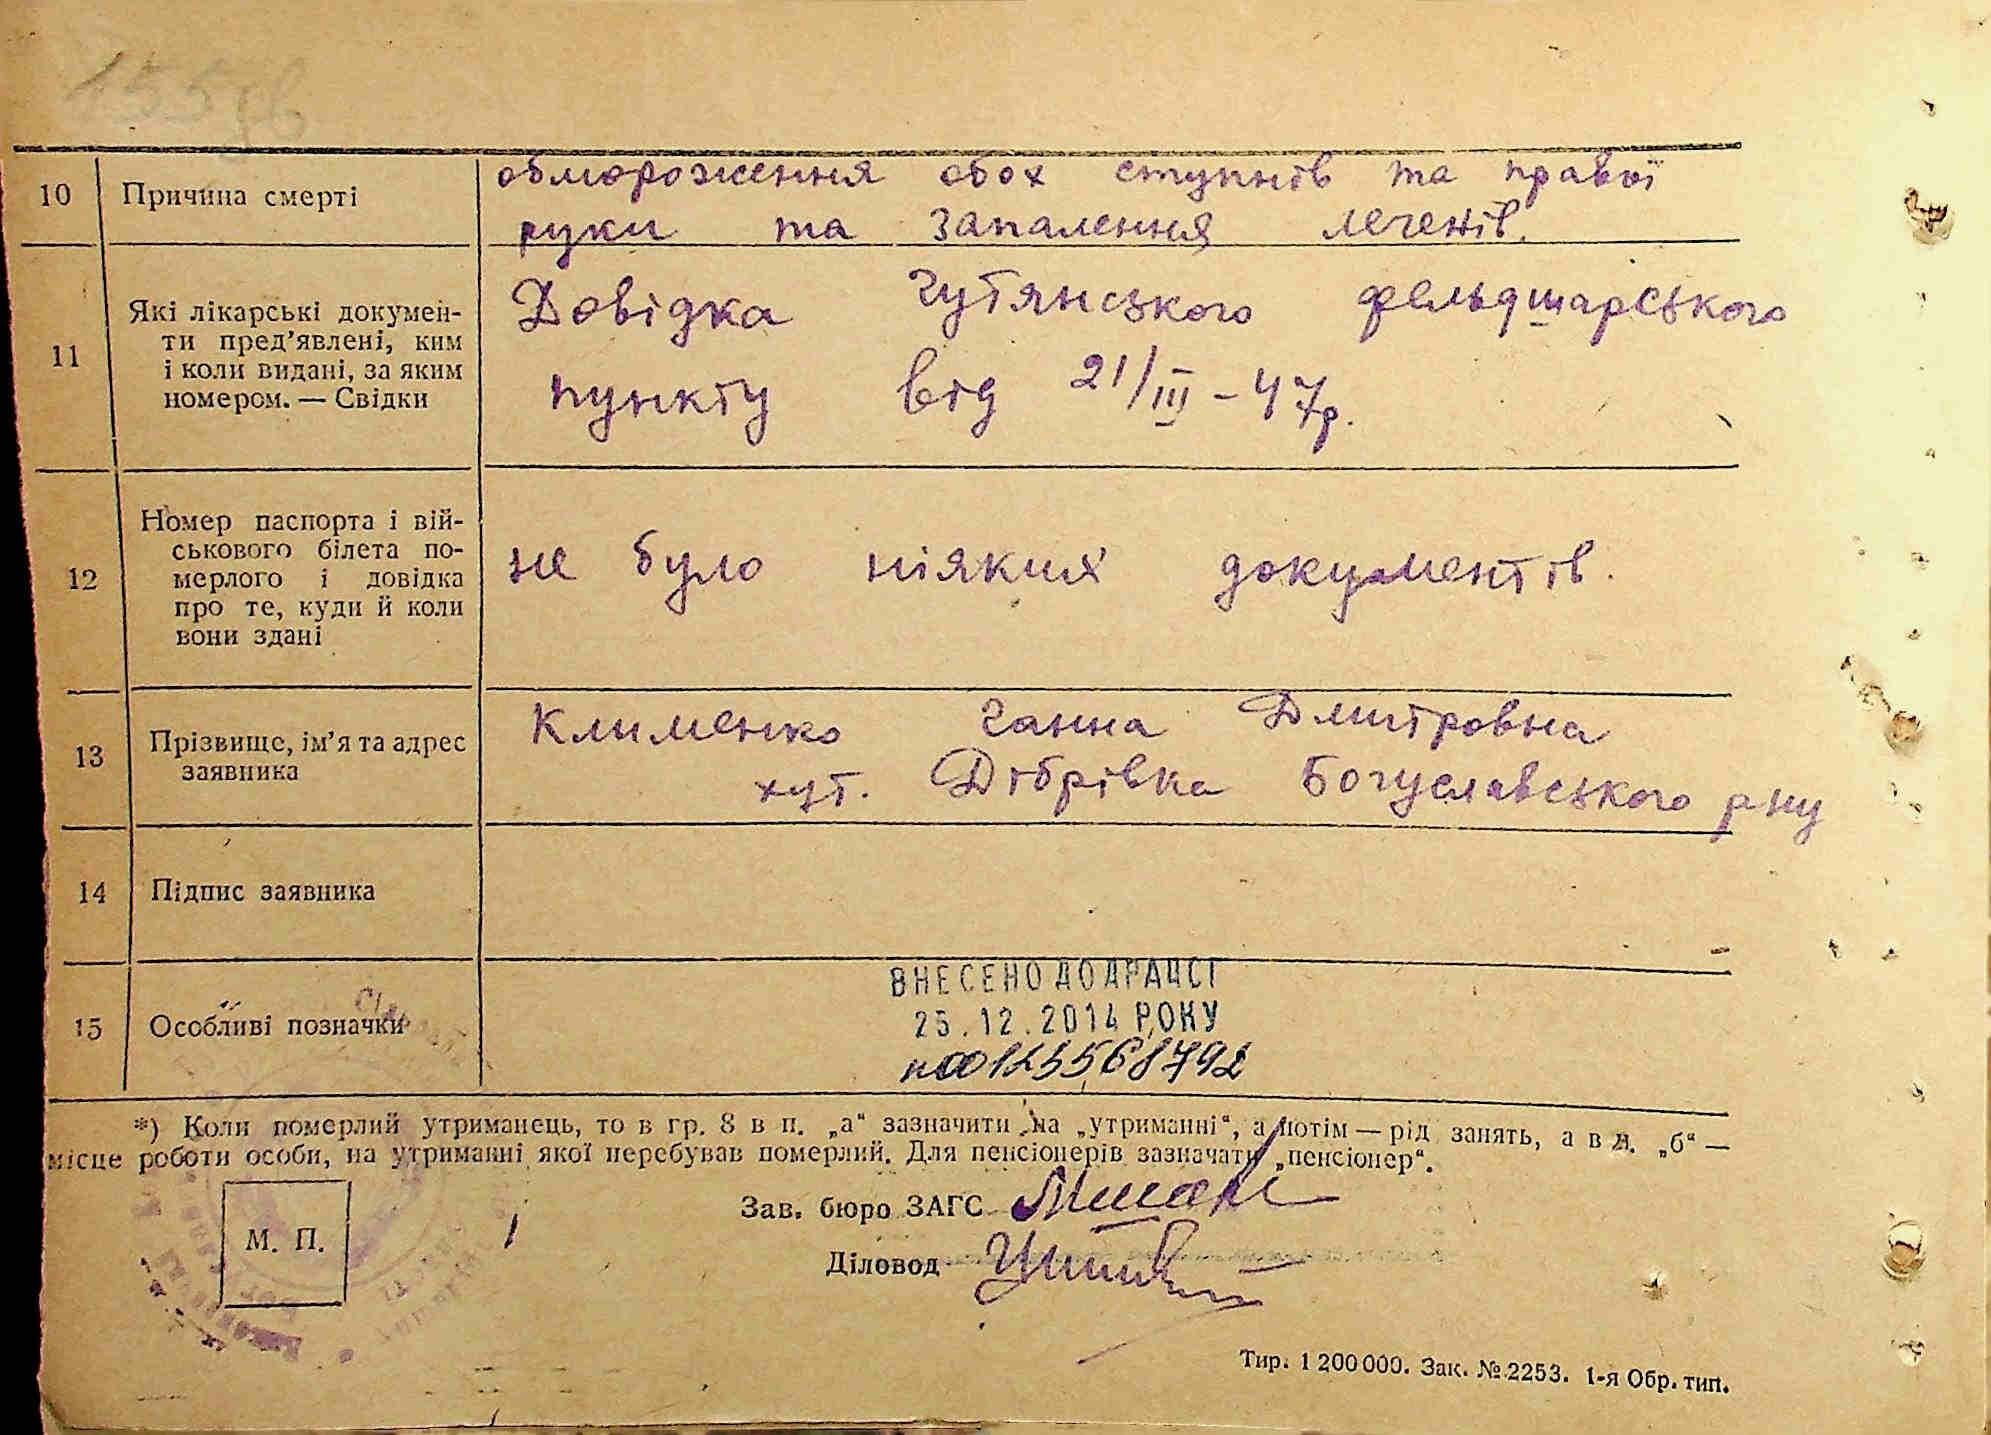 155зв
10 Причина смерті
обмороження обох ступнів та правої
руки та запалення легенів.
11 Які лікарські докумен-
ти пред’явлені, ким
і коли видані, за яким
номером. — Свідки
Довідка Гутянського фельдшарського
пункту від 21/III - 47р.
12 Номер паспорта і вій-
ськового білета по-
мерлого і довідка
про те, куди й коли
вони здані
не було ніяких документів.
13 Прізвище, ім’я та адрес
заявника
Клименко Ганна Дмитровна
хут. Дібрівка Богуславського рну
14 Підпис заявника
15 Особливі позначки
ВНЕСЕНО ДО ДРАЦСГ
25.12.2014 РОКУ
*) Коли померлий утриманець, то в гр. 8 в п. „а“ зазначити „на „утриманні“, а потім — рід занять, а в п. „б“ —
місце роботи особи, на утриманні якої перебував померлий. Для пенсіонерів зазначати „пенсіонер“.
М. П.
Зав. бюро ЗАГС
Діловод
Тир. 1 200 000. Зак. № 2253. 1-я Обр. тип.